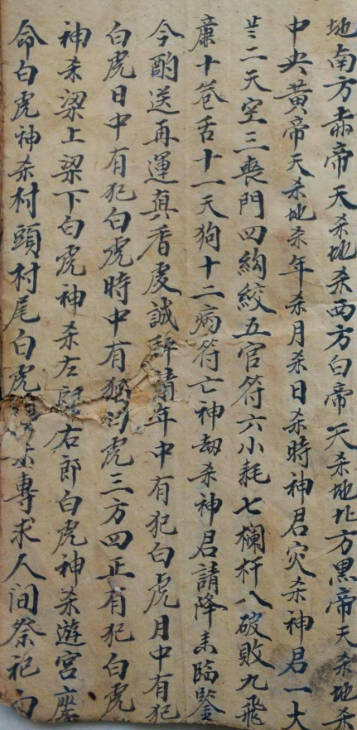 地南方赤帝天杀地杀西方白帝天杀地北方黑帝天杀地杀
中央黄帝天杀地杀年杀月杀日杀時神君灾杀神君一大
二天空三喪門四絞五官符六小耗七欄杆八破敗九飛
廉十卷舌十一天狗十二病符亡神劫杀神君請降來臨鍳
今酌送再運真香虔誠請年中有犯白虎月中有犯
白虎日中有犯白虎時中有虎三方四正有犯白虎
神杀梁上梁下白虎神杀左右郎白虎神杀遊宫
命白虎神杀村頭村尾白虎專求人间祭祀白